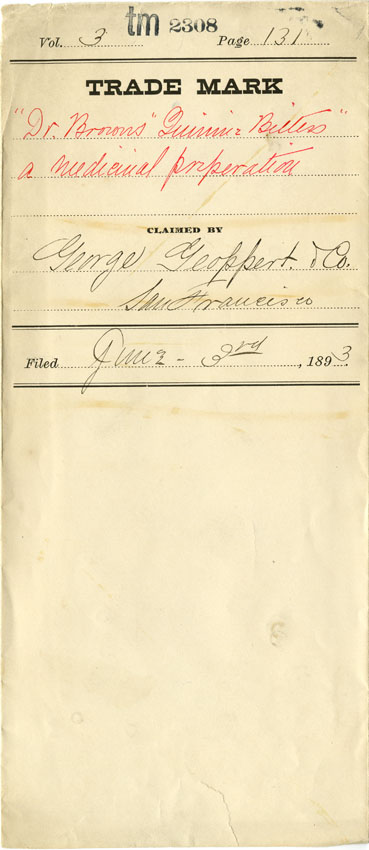 tm 2308
Vol. 3 Page 131
TRADE MARK
"Dr. Browns" Quinine Bitters"
a medicinal preperation
CLAIMED BY
George Geoppert. & Co.
San Francisco
Filed June - 3rd, 1893